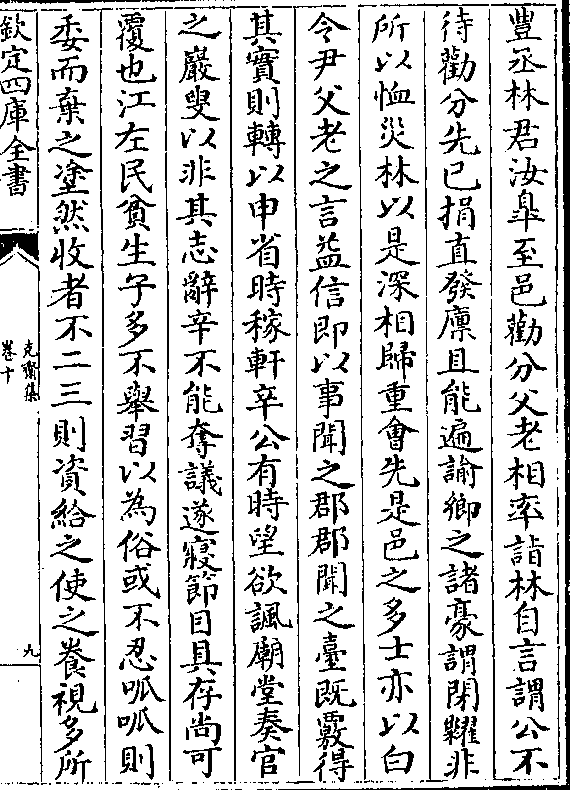 豐丞林君汝臯至邑勸分父老相率詣林自言謂公不
待勸分先已捐直發廪且能遍諭鄉之諸豪謂閉糶非
所以恤災林以是深相歸重會先是邑之多士亦以白
令尹父老之言益信即以事聞之郡郡聞之臺既覈得
其實則轉以申省時稼軒辛公有時望欲諷廟堂奏官
之巖叟以非其志辭辛不能奪議遂寢節目具存尚可
覆也江左民貧生子多不舉習以為俗或不忍呱呱則
委而棄之塗然收者不二三則資給之使之養視多所
欽定四庫全書
克齋集
卷十
九